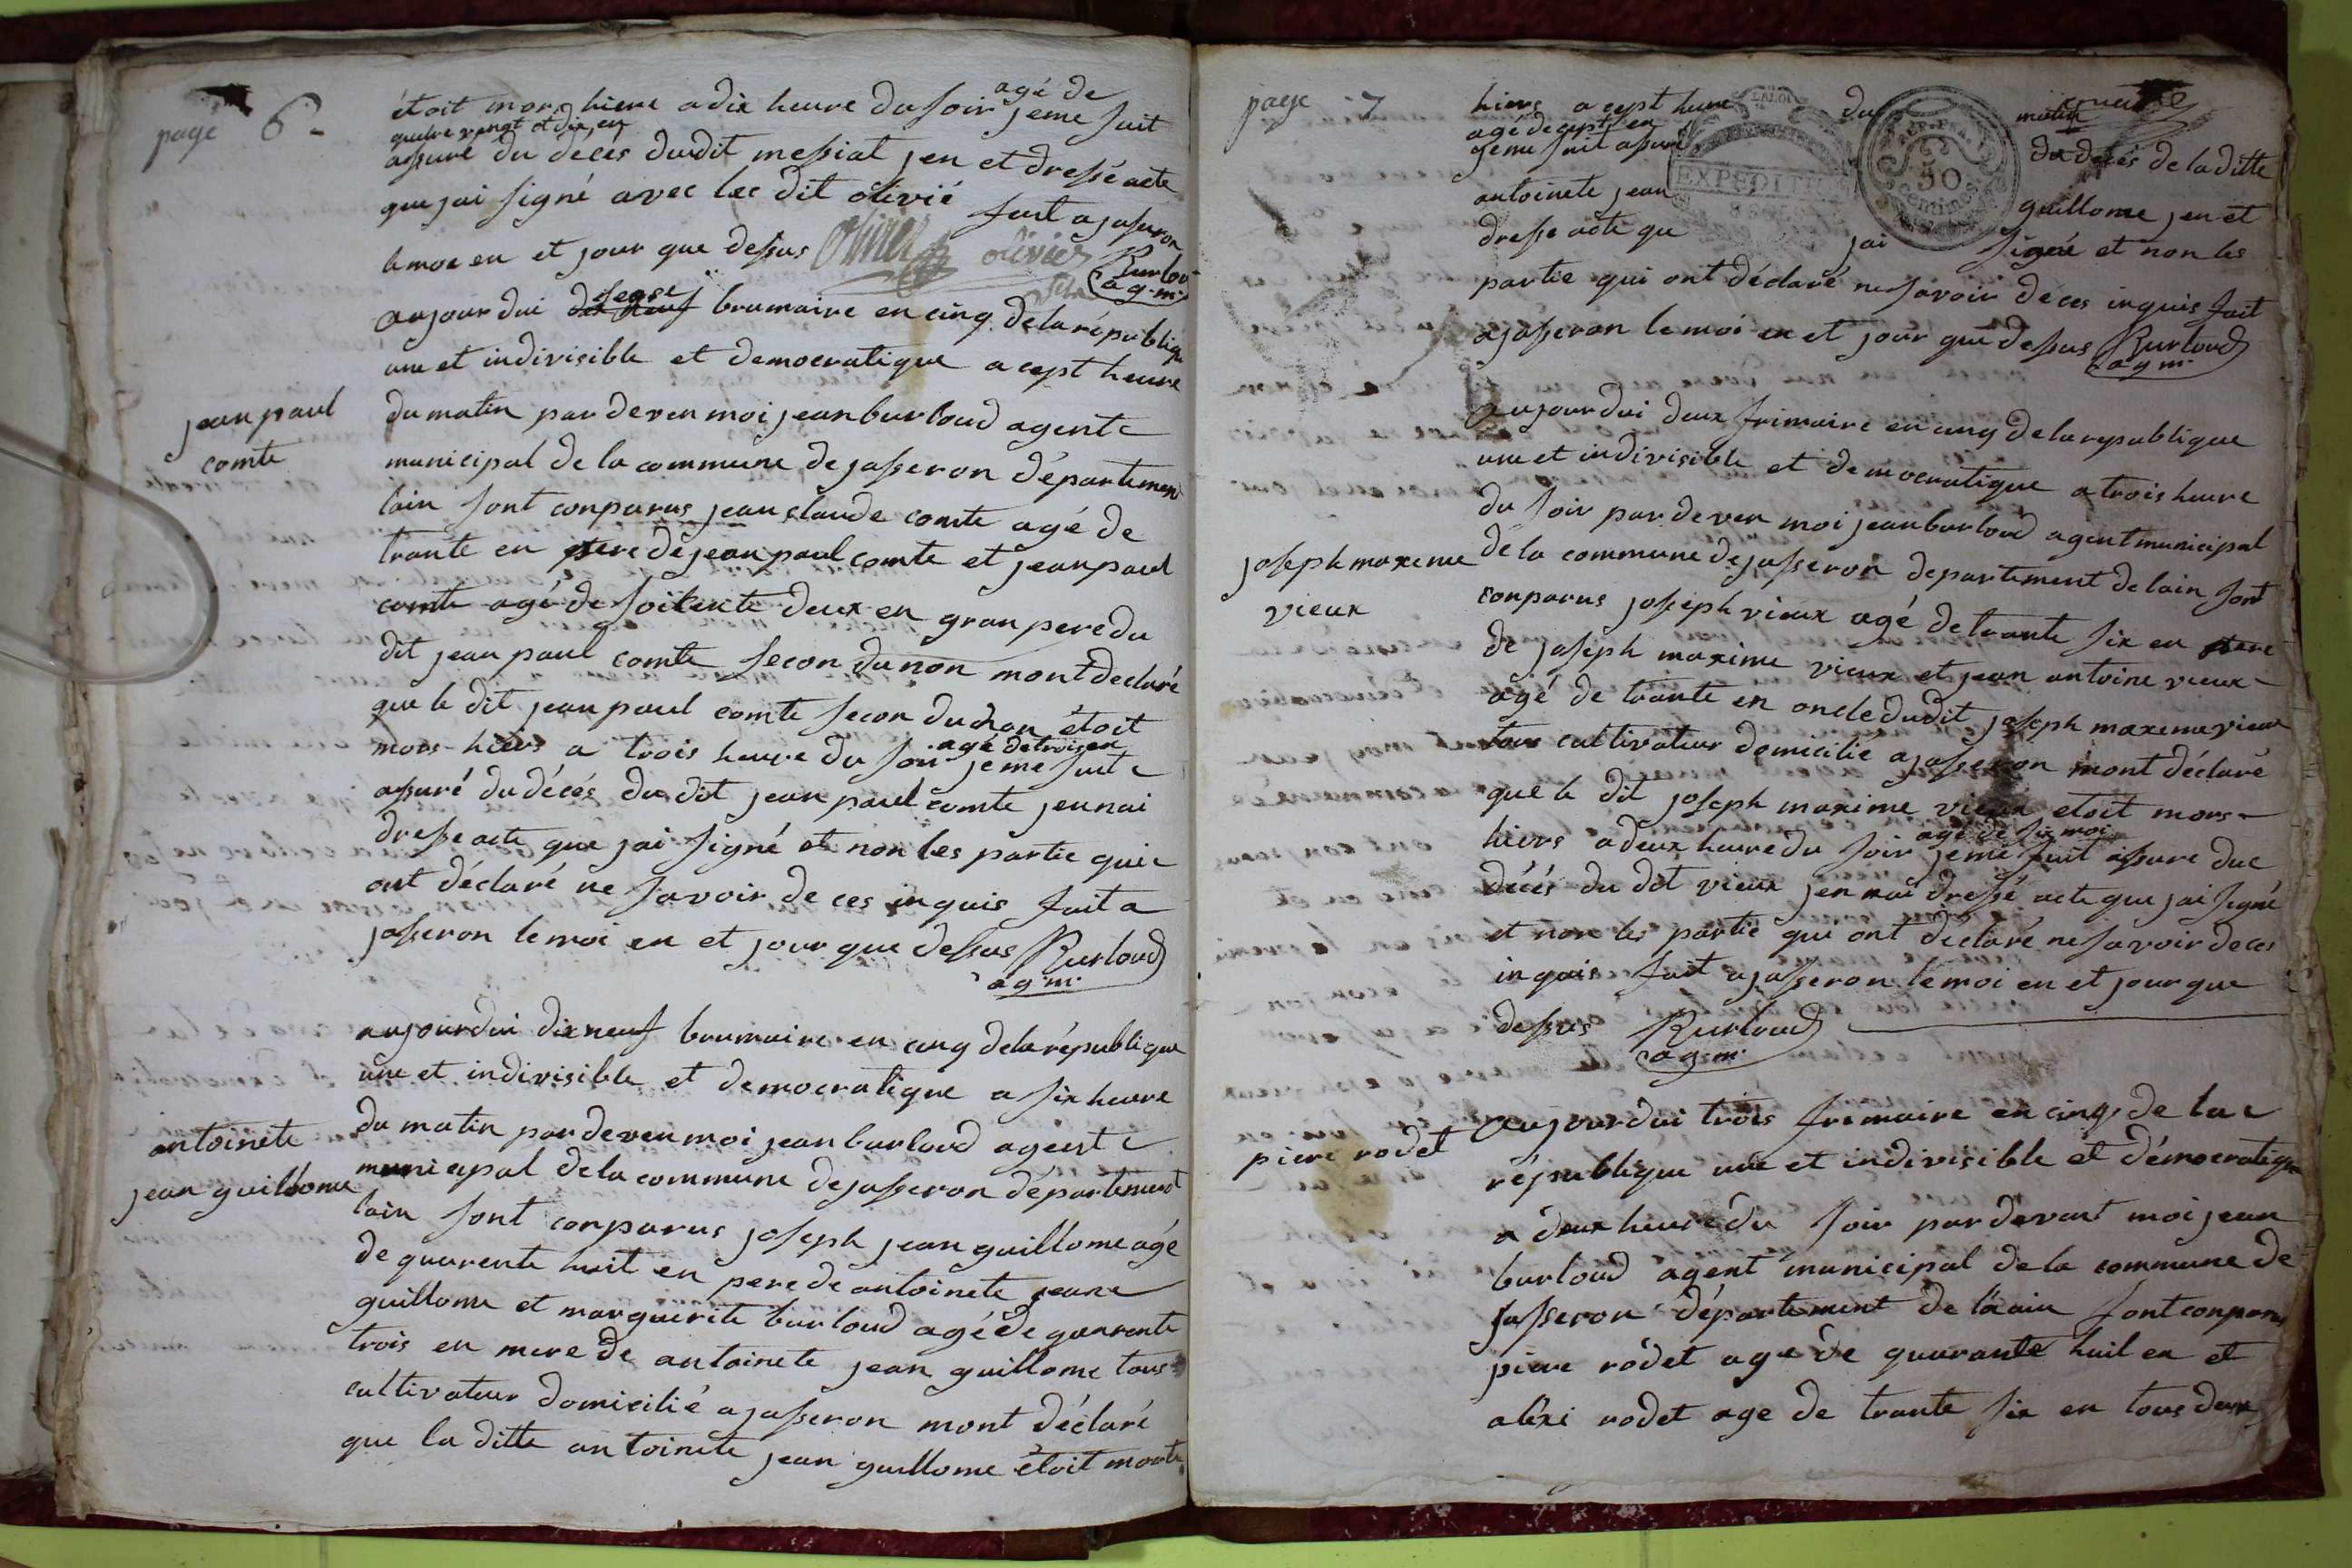 page 6
étoit mors hiere a dix heure du soir agé de
quatre vengt et dix en
jeme suit
assuré du decés dudit messiat jen et dressé acte
que jai signé avec lec dit olivié
fait a jasseron
le moi en et jour que dessus olivier olivier Burloud
ag. m.
aujourdui dix neuf sease brumaire en cinq de la républiqe
une et indivisible et democratique a cept heure
jean paul
comte
du matin par deven moi jean burloud agente
municipal de la commune de jasseron département
lain sont conparus jean claude comte agé de
trante en pere de jean paul comte et jean paul
comte agé de soitente deux en gran pere du
dit jean paul comte secon du non mont declaré
que le dit jean paul comte secon du non étoit
mors hiers a trois heure du soir agé de trois en jeme suit
assuré du décés du dit jean paul comte jen nai
dresse acte que jai signé et non les partie qui
ont déclaré ne savoir de ces inquis fait a
jasseron le moi en et jour que dessus Burloud
ag. m.
aujourdui dix neuf brumaire en cinq de la république
une et indivisible et democratique a six heure
antoinete
jean guillome
du matin par deven moi jean burloud agent
municipal de la commune de jasseron département
lain sont conparus joseph jean guillome agé
de quarente huit en pere de antoinete jean
guillome et marguerite burloud agé de quarente
trois en mere de antoinete jean guillome tous
cultivateur domicilié a jasseron mont déclaré
que la ditte antoinete jean guillome étoit morte
page 7
hiers a cept heure du matin
agé de cept en
jeme suit assuré du décés de la ditte
antoinete jean guillome jen et
dresse acte que jai signé et non les
partie qui ont déclaré ne savoir de ces inquis fait
a jasseron le moi en et jour que dessus Burloud
ag. m.
LA LOI
EXPEDITION
REP. FRA.
50
centimes
aujourdui deux frimaire en cinq de la republique
une et indivisible et democratique a trois heure
du soir par deven moi jean burloud agent municipal
joseph maxime
vieux
de la commune de jasseron departement de lain sont
conparus joseph vieux agé de trante six en pere
de joseph maxime vieux et jean antoine vieux
agé de trante en oncle dudit joseph maxime vieux
tous cultivateur domicilié a jasseron mont déclaré
que le dit joseph maxime vieux etoit mors
hiers a deux heure du soir agé de six moi jeme suit assuré due
décés du dit vieux jen nai dressé acte que jai signé
et non les partie qui ont déclaré ne savoir de ces
inquis fait a jasseron le moi en et jour que
dessus Burloud
ag. m.
piere rodet
aujourdui trois frimaire en cinq de la
république une et indivisible et démocratique
a deux heure du soir par devant moi jean
burloud agent municipal de la commune de
jasseron département de laain sont conparus
piere rodet agé de quarante huit en et
aléxi rodet age de trante six en tous deux